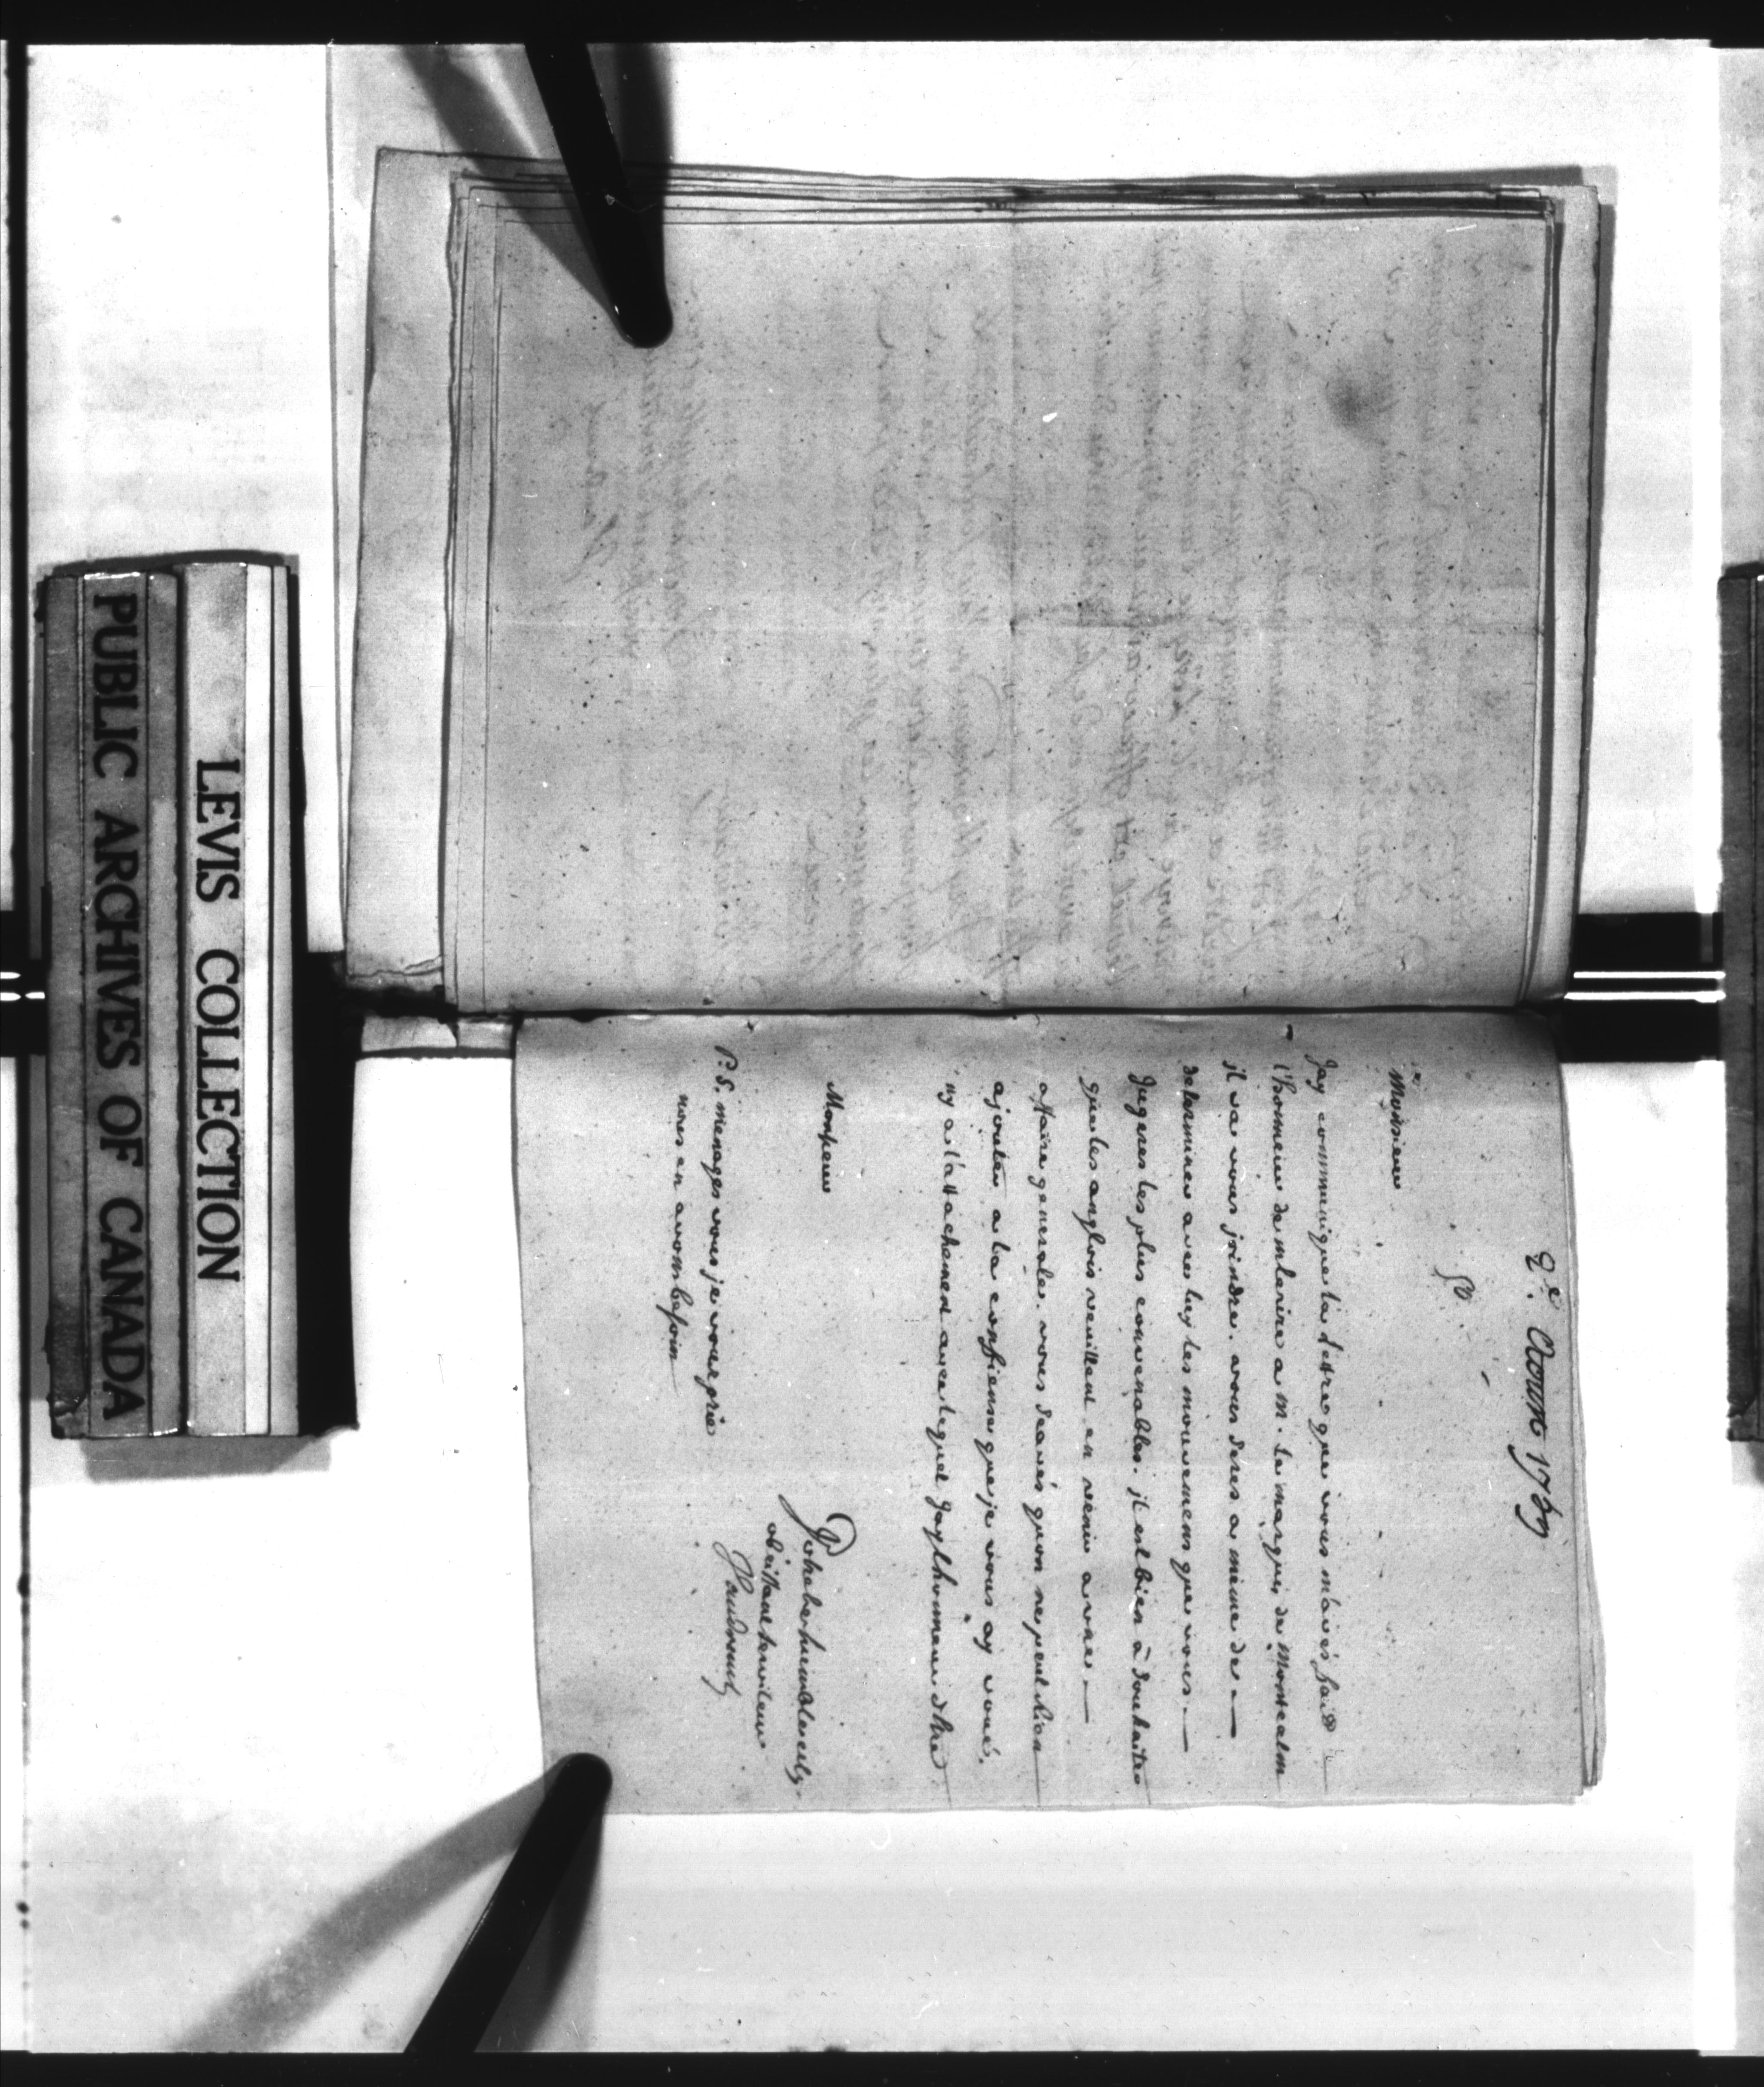 2.e Aoust 1759
50
Monsieur
Jay communiqué la lettre que vous m'avés fait
l'honneur de mecrire a M. le marquis de Montcalm
il va vous joindre. vous serez a meme de
determiner avec luy les mouvemens que vous
jugeres les plus convenables. il est bien à souhaiter
que les anglois veuillent en venir a une
affaire generale. vous scavés quon ne peut rien
ajouter a la confience que je vous ay voué.
ny a l'attachement avec lequel Jay lhonneur detre
Monsieur
Votre tres humble et tres
obeissant serviteur
Vaudreuil
P.S. menagés vous je vous prie
nous en avons besoin
PUBLIC ARCHIVES OF CANADA
LEVIS COLLECTION